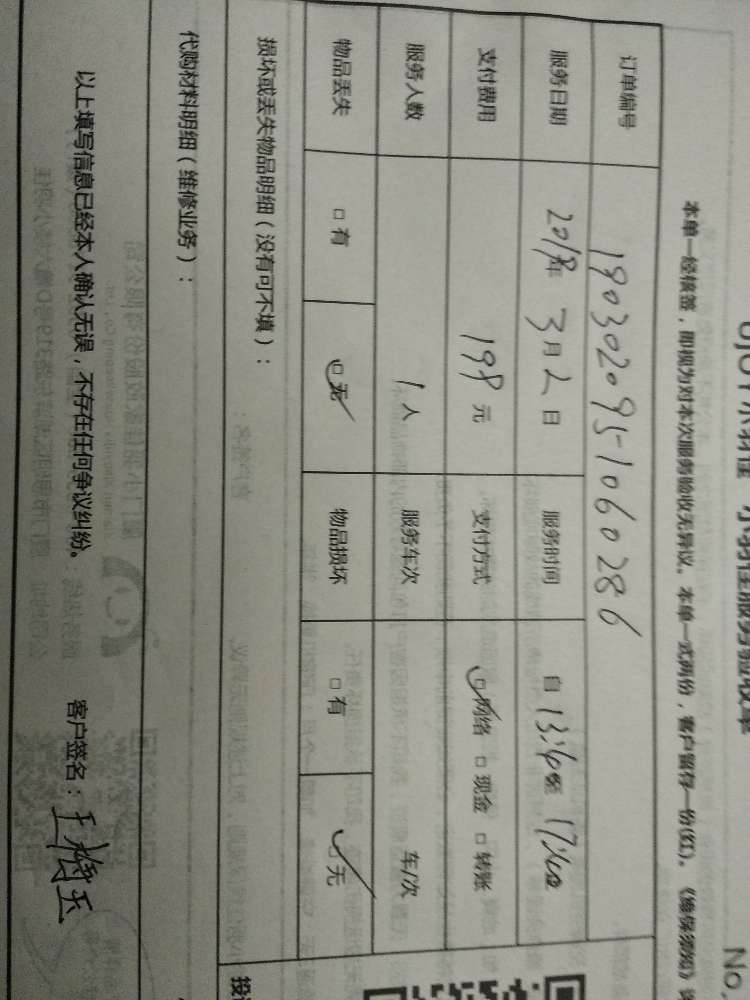 No.
本单一经核签，即视为对本次服务验收无异议。本单一式两份，客户留存一份(红)。《维保须知》
订单编号 1903020951060286
服务日期 2019年 3月2日 服务时间 自 13:40至 17:40
支付费用 198元 支付方式 □网络 □现金 □转账
服务人数 1人 服务车次 车/次
物品丢失 □有 □无 物品损坏 □有 □无
损坏或丢失物品明细（没有可不填）：
代购材料明细（维修业务）：
以上填写信息已经本人确认无误，不存在任何争议纠纷。 客户签名：